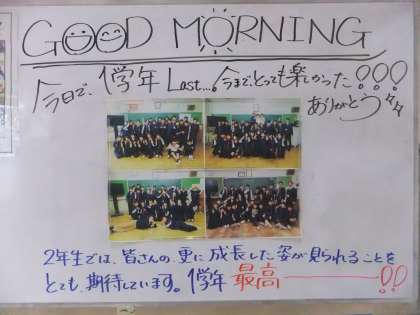 GOOD MORNING
今日で、1学年 Last...。今まで、とっても楽しかった!!!
ありがとう!!
2年生では、皆さんの、更に成長した姿が見られることを
とても、期待しています。1学年 最高――!!